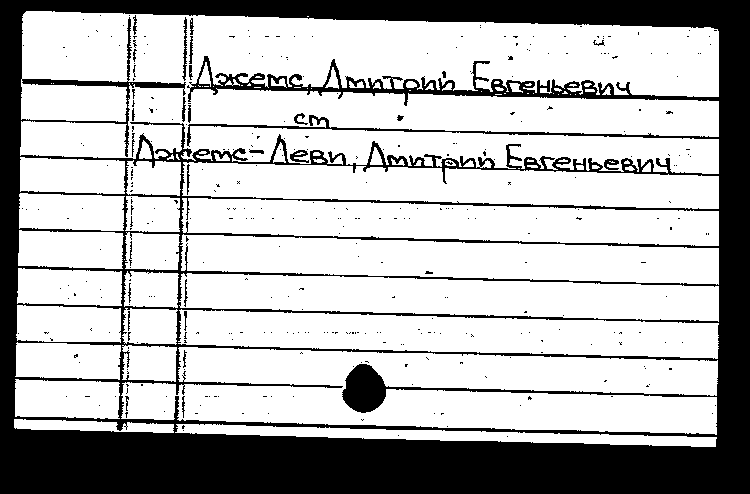 Джетс, Дмитрий Евгеньевич
ст
Джетс-Леви, Дмитрий Евгеньевич